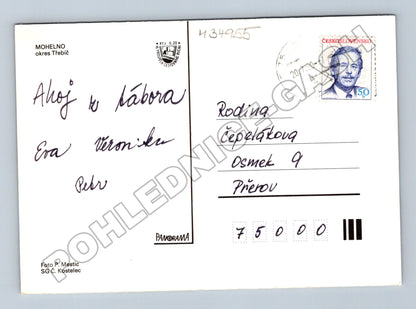 MOHELNO
okres Třebíč
434955
ČESKOSLOVENSKO
150
Ahoj z tábora
Eva Veronika
Petr
Rodina
Čepelákova
Osmek 9
Přerov
75000
PANORAMA
Foto P. Mastič
SG Č. Kostelec
POHLEDNICE.CASH